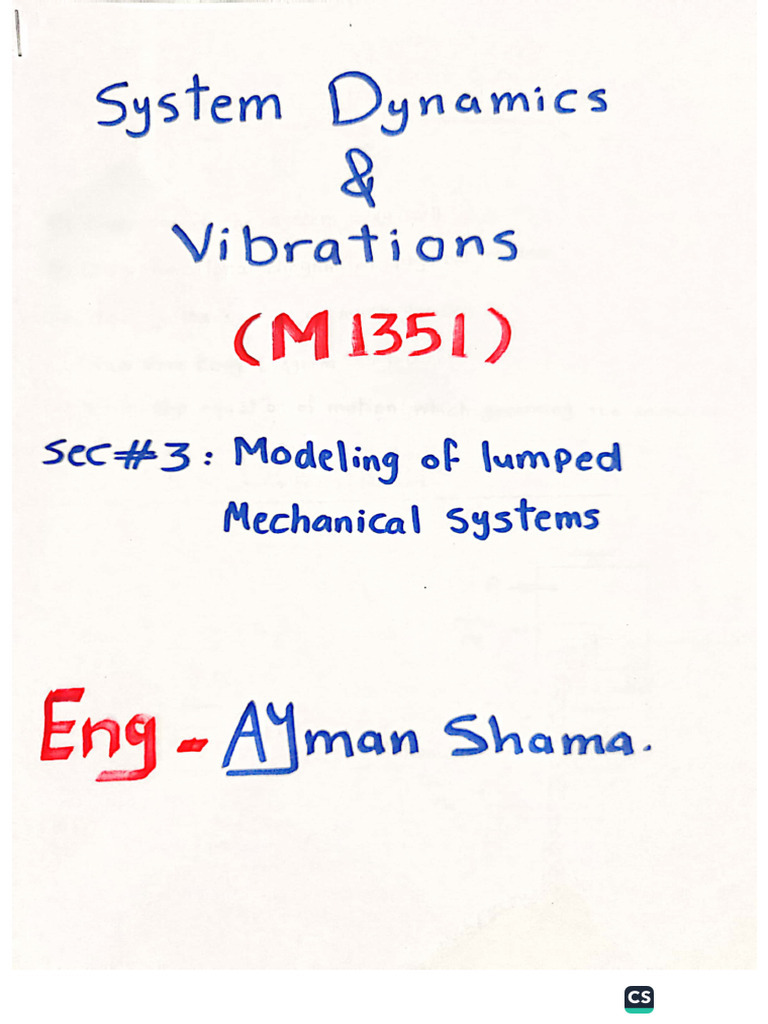 System Dynamics
&
Vibrations
(M1351)
sec#3: Modeling of lumped
Mechanical systems
Eng - Ayman Shama.
CS